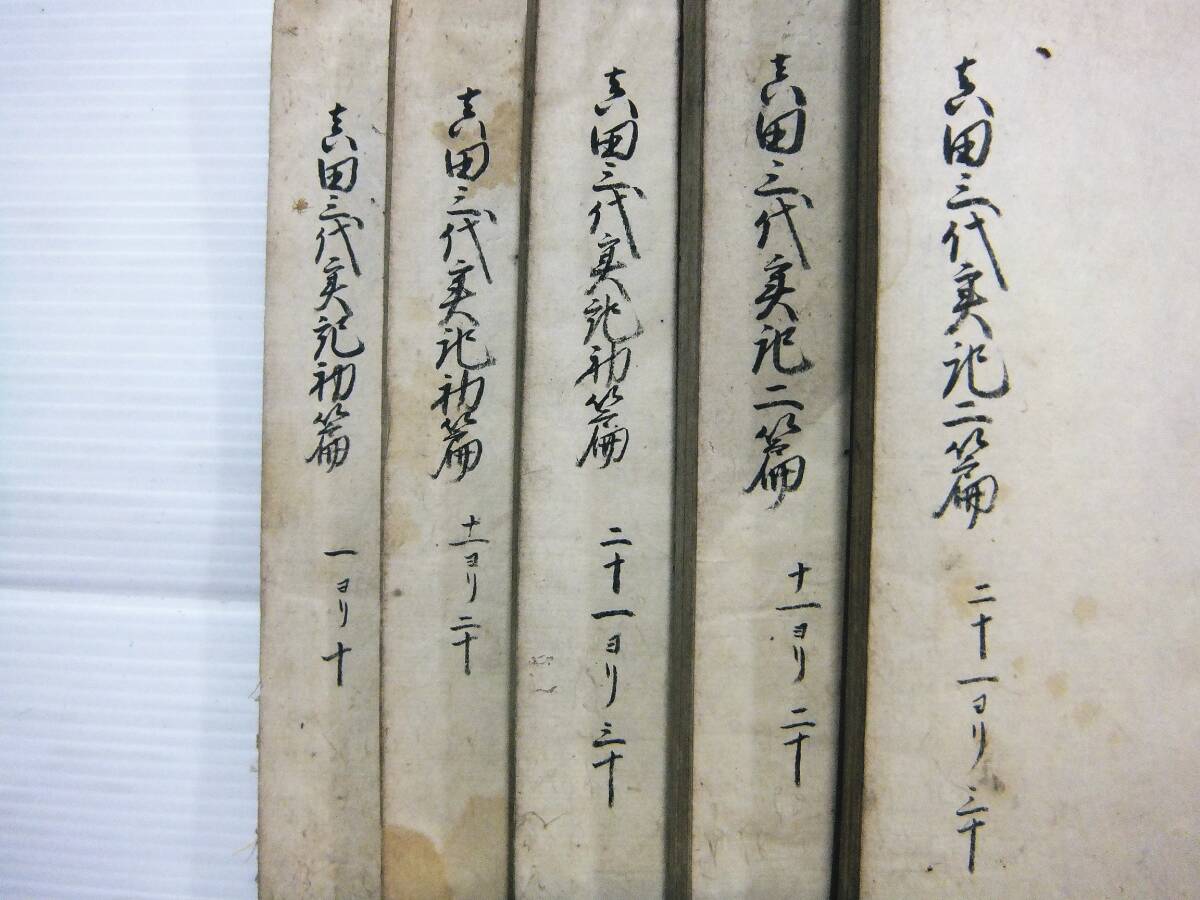 真田三代実記二篇 二十一ヨリ三十
真田三代実記二篇 十一ヨリ二十
真田三代実記初篇 二十一ヨリ三十
真田三代実記初篇 十一ヨリ二十
真田三代実記初篇 一ヨリ十